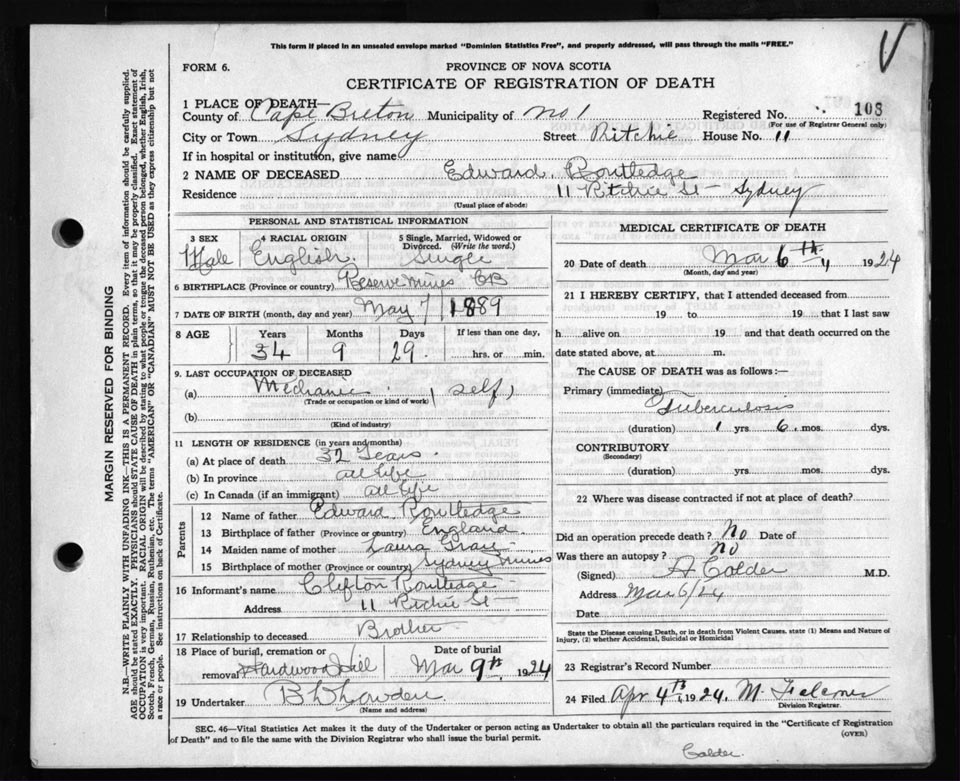 This form if placed in an unsealed envelope marked "Dominion Statistics Free", and properly addressed, will pass through the mails "FREE."
FORM 6.
PROVINCE OF NOVA SCOTIA
CERTIFICATE OF REGISTRATION OF DEATH
1 PLACE OF DEATH—
County of Cape Breton Municipality of No 1 Registered No. 103
(For use of Registrar General only)
City or Town Sydney Street Ritchie House No. 11
If in hospital or institution, give name
2 NAME OF DECEASED Edward Routledge
Residence 11 Ritchie St - Sydney
(Usual place of abode)
PERSONAL AND STATISTICAL INFORMATION
3 SEX Male
4 RACIAL ORIGIN English
5 Single, Married, Widowed or Divorced. (Write the word.) Single
6 BIRTHPLACE (Province or country) Reserve Mines CB
7 DATE OF BIRTH (month, day and year) May 7 1889
8 AGE Years 34 Months 9 Days 29 If less than one day, hrs. or min.
9. LAST OCCUPATION OF DECEASED
(a) Mechanic (self)
(Trade or occupation or kind of work)
(b)
(Kind of industry)
11 LENGTH OF RESIDENCE (in years and months)
(a) At place of death 32 Years
(b) In province all life
(c) In Canada (if an immigrant) all life
Parents
12 Name of father Edward Routledge
13 Birthplace of father (Province or country) England
14 Maiden name of mother Laura
15 Birthplace of mother (Province or country) Sydney Mines
16 Informant's name Clifton Routledge
Address 11 Ritchie St -
17 Relationship to deceased Brother
18 Place of burial, cremation or removal Hardwood Hill
Date of burial Mar 9th 1924
19 Undertaker
(Name and address)
MEDICAL CERTIFICATE OF DEATH
20 Date of death Mar 6th 1924
(Month, day and year)
21 I HEREBY CERTIFY, that I attended deceased from
19 to 19 that I last saw
h alive on 19 and that death occurred on the
date stated above, at m.
The CAUSE OF DEATH was as follows:—
Primary (immediate) Tuberculosis
(duration) 1 yrs. 6 mos. dys.
CONTRIBUTORY
(Secondary)
(duration) yrs. mos. dys.
22 Where was disease contracted if not at place of death?
Did an operation precede death? No Date of
Was there an autopsy? no
(Signed) A Calder M.D.
Address Mar 6/24
Date
State the Disease causing Death, or in death from Violent Causes, state (1) Means and Nature of
Injury, (2) whether Accidental, Suicidal or Homicidal
23 Registrar's Record Number
24 Filed Apr 4th 1924.
Division Registrar.
SEC. 46—Vital Statistics Act makes it the duty of the Undertaker or person acting as Undertaker to obtain all the particulars required in the "Certificate of Registration
of Death" and to file the same with the Division Registrar who shall issue the burial permit.
(OVER)
Calder.
MARGIN RESERVED FOR BINDING
N.B.—WRITE PLAINLY WITH UNFADING INK—THIS IS A PERMANENT RECORD. Every item of information should be carefully supplied.
AGE should be stated EXACTLY. PHYSICIANS should STATE CAUSE OF DEATH in plain terms, so that it may be properly classified. Exact statement of
OCCUPATION is very important. RACIAL ORIGIN will be described by stating to what people or tongue the deceased person belonged, whether English, Irish,
Scotch, French, German, Russian, Ruthenian, etc. The terms "AMERICAN" OR "CANADIAN" MUST NOT BE USED as they express citizenship but not
a race or people. See instructions on back of Certificate.